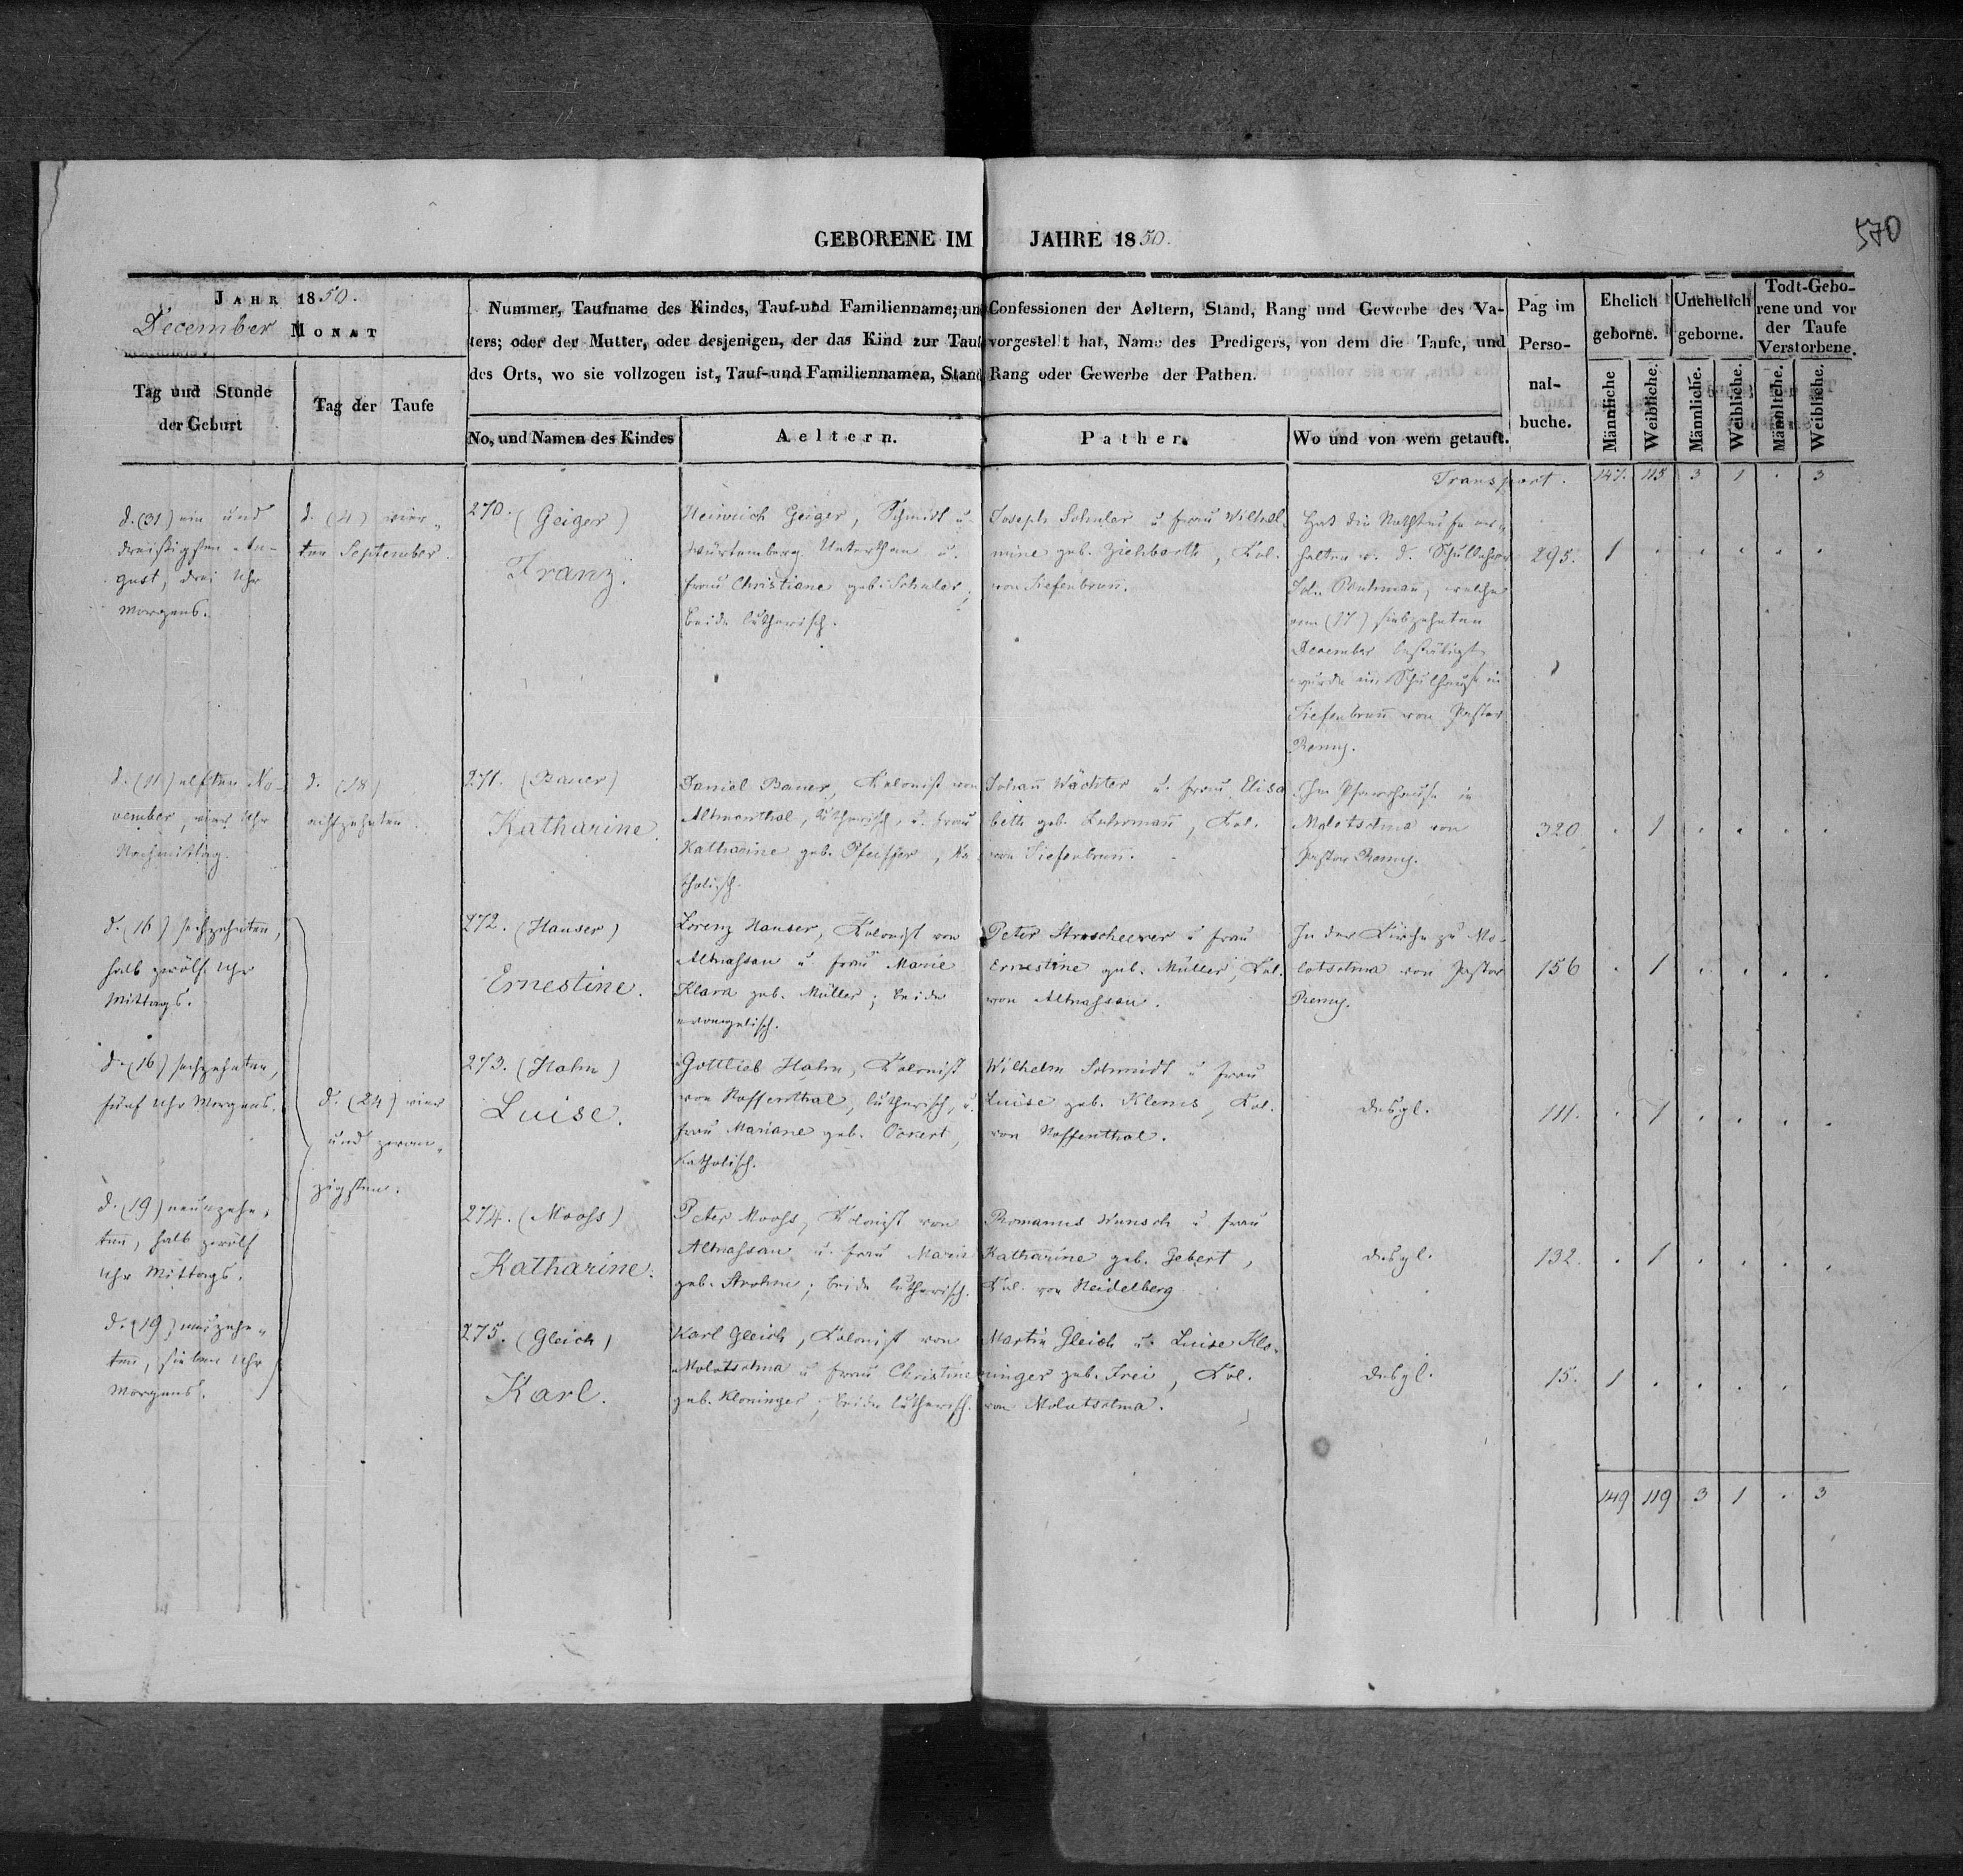 570
GEBORENE IM JAHRE 1850.
JAHR 1850.
December MONAT
Tag und Stunde
der Geburt
Tag der Taufe
Nummer, Taufname des Kindes, Tauf-und Familienname; und Confessionen der Aeltern, Stand, Rang und Gewerbe des Va-
ters; oder der Mutter, oder desjenigen, der das Kind zur Taufe vorgestellt hat, Name des Predigers, von dem die Taufe, und
des Orts, wo sie vollzogen ist, Tauf-und Familiennamen, Stand Rang oder Gewerbe der Pathen.
No, und Namen des Kindes
Aeltern.
Pather.
Wo und von wem getauft.
Pag im
Perso-
nal-
buche.
Ehelich
geborne.
Unehelich
geborne.
Todt-Gebo-
rene und vor
der Taufe
Verstorbene.
Männliche
Weibliche.
Männliche.
Weibliche.
Männliche.
Weibliche.
Transport. 147. 115 3 1 . 3
d. (31) ein und
dreißigsten Au-
gust, drei Uhr
Morgens.
d. (4) vier-
ten September.
270. (Geiger)
Franz.
Heinrich Geiger, Schmidt u.
Würtemberg. Unterthan u.
Frau Christiane geb. Schuler,
beide lutherisch.
Joseph Schuler u. Frau Wilhel-
mine geb. Ziehbarth, Kol.
von Tiefenbrun.
Hat die Nothtaufe er-
halten v. d. Schullehrer
welche
am (17) siebzehnten
December bestätigt
wurde im Schulhause in
Tiefenbrun von Pastor
Remy.
295. 1 . . . . .
d. (11) elften No-
vember, vier Uhr
Nachmittag.
d. (18)
achtzehnten.
271. (Bauer)
Katharine.
Daniel Bauer, Kolonist von
Altmonthal, lutherisch, u. Frau
Katharine geb. Pfeiffer, ka-
tholisch.
Johann Wächter u. Frau Elisa-
beth geb. Luhrmann, Kol.
von Tiefenbrun.
Im Pfarrhause in
Molotschna von
Pastor Remy.
320. . 1 . . . .
d. (16) sechzehnten,
halb zwölf Uhr
Mittags.
272. (Hauser)
Ernestine.
Lorenz Hauser, Kolonist von
Altnassau u. Frau Marie
Klara geb. Müller; beide
evangelisch.
Peter Stroscheerer u. Frau
Ernestine geb. Müller, Kol.
von Altnassau.
In der Kirche zu Mo-
lotschna von Pastor
Remy.
156 . 1 . . . .
d. (16) sechzehnten,
fünf Uhr Morgens.
d. (24) vier
und zwan-
zigsten.
273. (Hahn)
Luise.
Gottlieb Hahn, Kolonist
von Hoffenthal, lutherisch, u.
Frau Mariane geb. Ockert,
katholisch.
Wilhelm Schmidt u. Frau
Luise geb. Klemes, Kol.
von Hoffenthal.
desgl.
111. . 1 . . . .
d. (19) neunzehn-
ten, halb zwölf
Uhr Mittags.
274. (Moohs)
Katharine.
Peter Moohs, Kolonist von
Altnassau u. Frau Marie
geb. Strohm; beide lutherisch.
Romanus Wunsch u. Frau
Katharine geb. Gebert,
Kol. von Heidelberg
desgl.
132. . 1 . . . .
d. (19) neunzehn-
ten, sieben Uhr
Morgens.
275. (Gleich)
Karl.
Karl Gleich, Kolonist von
Molotschna u. Frau Christine
geb. Kloninger; beide lutherisch.
Martin Gleich u. Luise Klo-
ninger geb. Frei, Kol.
von Molotschna.
desgl.
15. 1 . . . .
149 119 3 1 . 3